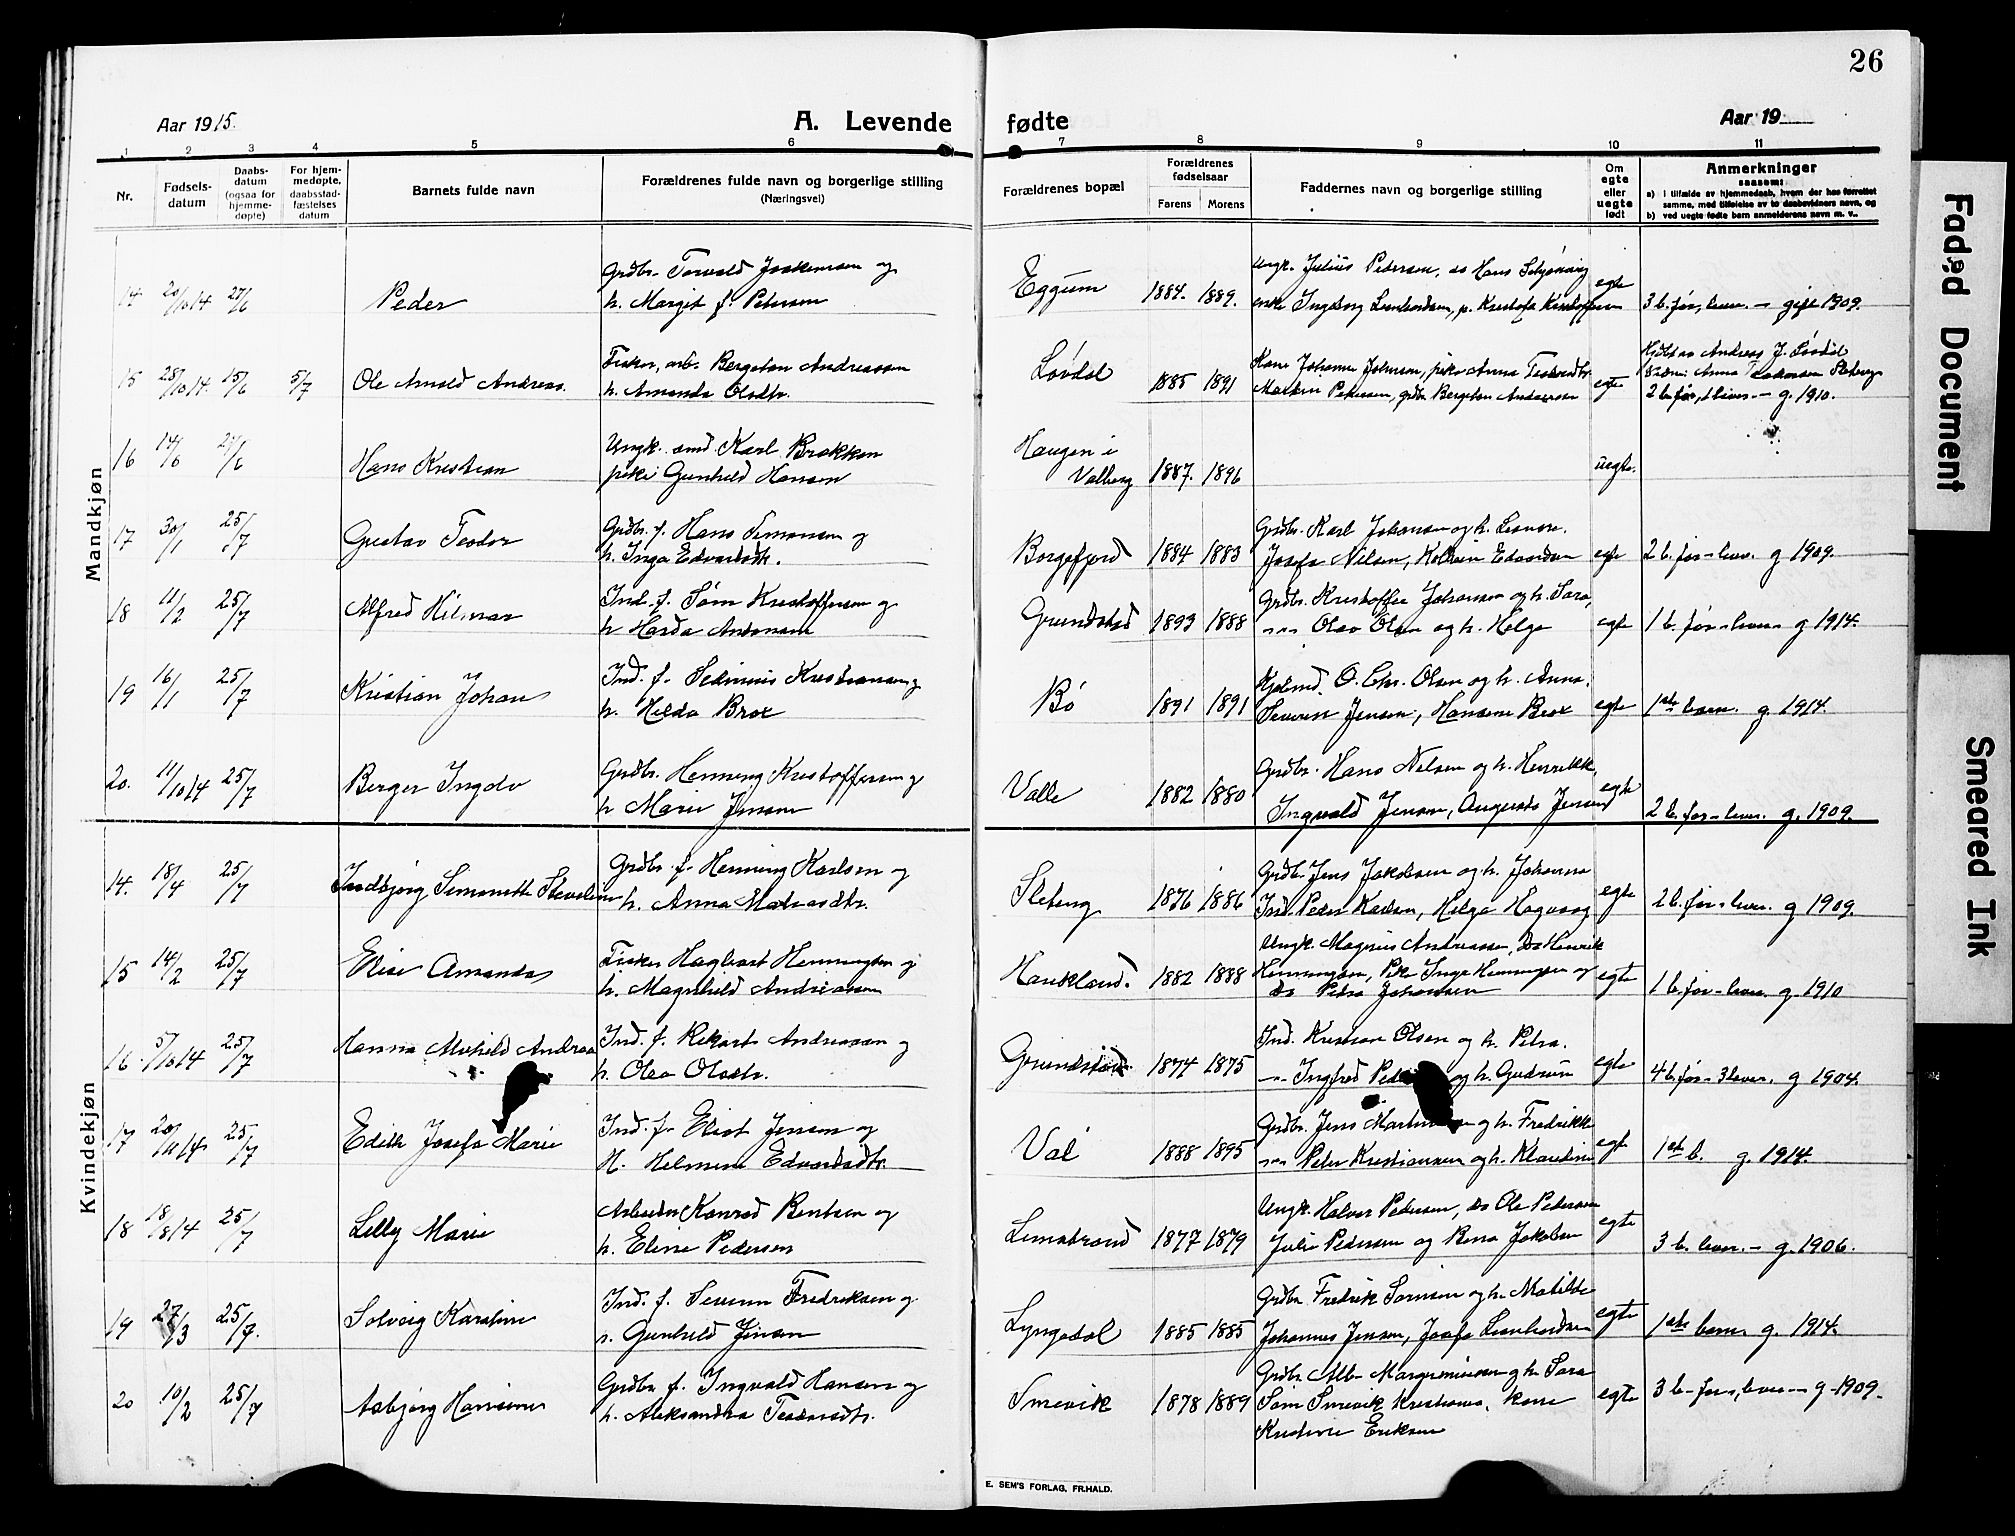 26
Aar 1915.
A. Levende
fødte
Aar 19
1 2 3 4 5 6 7 8 9 10 11
Nr.
Fødsels-
datum
Daabs-
datum
(ogsaa for
hjemme-
døpte)
For hjem-
medøpte,
daabsstad-
fæstelses
datum
Barnets fulde navn
Forældrenes fulde navn og borgerlige stilling
(Næringsvei)
Forældrenes bopæl
Forældrenes
fødselsaar
Farens Morens
Faddernes navn og borgerlige stilling
Om
egte
eller
uegte
født
Anmerkninger
saasom:
a) i tilfælde av hjemmedaab, hvem der har forrettet
samme, med tilføielse av to daabsvidners navn, og
b) ved uegte fødte barn anmelderens navn m. v.
Mandkjøn
14 20/10 14 27/6 Peder
Grdbr. Torvald Joakimsen og
h. Margit f. Petersen
Eggum 1884. 1889.
Ungk. Julius Pedersen, do Hans
enke Ingeborg Leonhardsen, p. Kristofa Kristoffersen
egte
3 b. før, lever. – gift 1909.
15 28/10 14. 15/6 5/7 Ole Arnold Andreas.
Fisker, arb. Bergeton Andreassen
h. Amanda Olsdtr.
Løvdal 1885 1891
Kone Johanna Johnsen, pike Anna Teodordtr.
Martin Petersen, grdbr. Bergeton Andersen
egte
Hjdbt av Andreas J. Løvdal
2 b. før, lever – g. 1910.
16 14/6 24/6 Hans Kristian
Ungk. smed Karl Brekken
pike Gunhild Hansen
Haugen i
Valberg 1887. 1896
uegte.
17 30/1 25/7 Gustav Teodor
Grdbr. f. Hans Simonsen og
h. Inga Edvardsdtr.
Borgefjord 1884 1883
Grdbr. Karl Johansen og h. Leonore.
Josefa Nilsen, Edvardsen
egte
2 b. før – lever. g 1909.
18 11/2 25/7 Alfred Hilmar
Ind. f. Søm Kristoffersen og
h Harda Antonsen
Grundstad 1893 1888
Grdbr. Kristoffer Johansen og h. Sara,
"" Olav Olsen og h. Helga
egte
1 b. før – lever g 1914.
19 16/1 25/7 Kristian Johan
Ind. f. Sedinius Kristiansen og
h. Hilda Brox
Bø 1891 1891
O. Chr. Olsen og h. Anna.
Severin Jensen, Hansine Brox
egte
1ste barn. g. 1914.
20. 11/10 14 25/7 Berger Ingolv
Grdbr. Henning Kristoffersen og
h Marie Jensen
Valle 1882 1880
Grdbr. Hans Nilsen og h. Henrikke,
Ingvald Jensen, Augusta Jensen
egte
2 b. før – lever. g. 1909.
Kvindekjøn
14. 18/4 25/7 Indbjørg Simonette Steveline
Grdbr. f. Henning Karlsen og
h. Anna Matiasdtr.
Steberg 1876 1886
Grdbr. Jens Jakobsen og h. Johanna
Ind. Peder Karlsen, Helga Hagvaag
egte
2 b. før – lever. g 1909.
15 14/2 25/7 Elise Amanda
Fisker Hagbart Henningsen og
h. Magnhild Andreassen
Haukland. 1882 1888
Ungk. Magnus Andreassen, do Henrik
Henningsen, Pike Inga Henningsen og
do Petra Johansen
egte
1 b. før – lever. g 1910
16. 5/10 14 25/7 Hanna Alvhild Andrea
Ind. f. Rikart Andreassen og
h. Olea Olsdtr.
Grundstad 1874 1875
Ind. Kristian Olsen og h. Petra.
"" Ingfred og h. Gudrun
egte
4 b. før – 3 lever. g 1904.
17 20/11 14 25/7 Edith Josefa Marie
Ind. f. Eliot Jensen og
H. Helmine Edvardsdtr.
Val 1888 1895
Grdbr. Jens og h. Fredrikke
"" Peter Kristiansen og h. Klaudine
egte
1ste b. g. 1914.
18 18/8 14 25/7 Lilly Marie
Arbeider Konrad Bentsen og
h. Eline Pedersen
Limstrand 1877 1879
Ungk. Halvor Pedersen, do Ole Pedersen
Julie Pedersen og Berna Jakobsen
egte
3 b. lever. – g. 1906.
19 27/3 25/7. Solveig Karoline
Ind. f. Severin Fredriksen og
h. Gunhild Jensen
Lyngedal 1885 1885
Grdbr. Fredrik Sørensen og h. Matilde
Johannes Jensen, Josefa Leonhardsen
egte
1ste barn. g. 1914.
20 10/2 25/7 Asbjørg Hansine
Grdbr. f. Ingvald Hansen og
h. Aleksandra Teodorsdtr.
Smevik 1878 1889
Grdbr. Alb. og h. Sara
Søm Smevik Kristiansen, kone
Kristine Eriksen
egte
3 b. før, lever – g. 1909.
E. SEM'S FORLAG, FR.HALD.
Faded Document
Smeared Ink